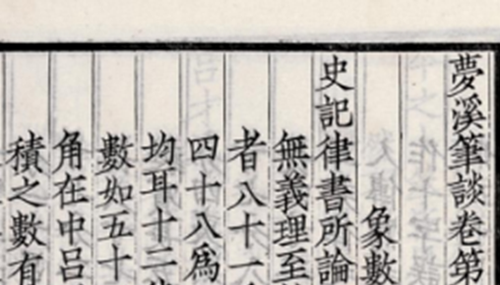 夢溪筆談卷第
象數
史記律書所論
無義理至
者八十一
四十八爲
均耳十二
數如五十
角在中呂
積之數有